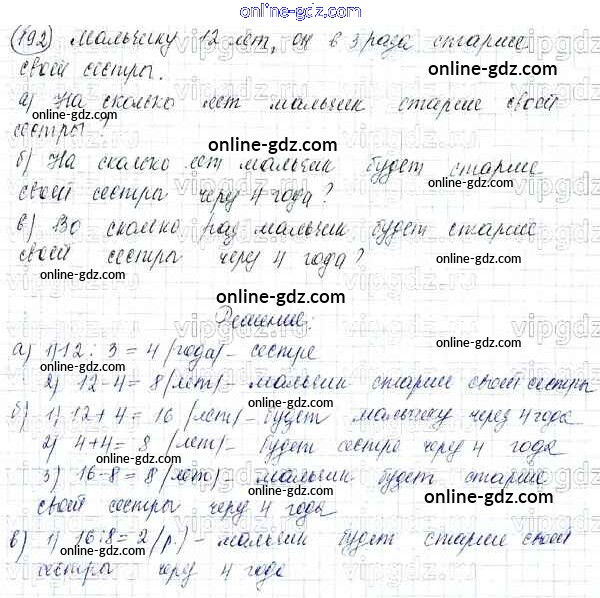 online-gdz.com
192) Мальчику 12 лет, он в 3 раза старше
своей сестры.
online-gdz.com
а) На сколько лет мальчик старше своей
сестры?
online-gdz.com
б) На сколько лет мальчик будет старше
своей сестры через 4 года?
в) Во сколько раз мальчик будет старше
своей сестры через 4 года?
online-gdz.com online-gdz.com
online-gdz.com
Решение:
а) 1) 12 : 3 = 4 (года) – сестре
online-gdz.com
2) 12 - 4 = 8 (лет) – мальчик старше своей сестры
б) 1) 12 + 4 = 16 (лет) – будет мальчику через 4 года
2) 4 + 4 = 8 (лет) – будет сестре через 4 года
online-gdz.com online-gdz.com
3) 16 - 8 = 8 (лет) – мальчик будет старше
своей сестры через 4 года
online-gdz.com
в) 1) 16 : 8 = 2 (р.) – мальчик будет старше своей
online-gdz.com online-gdz.com
сестры через 4 года
vipgdz